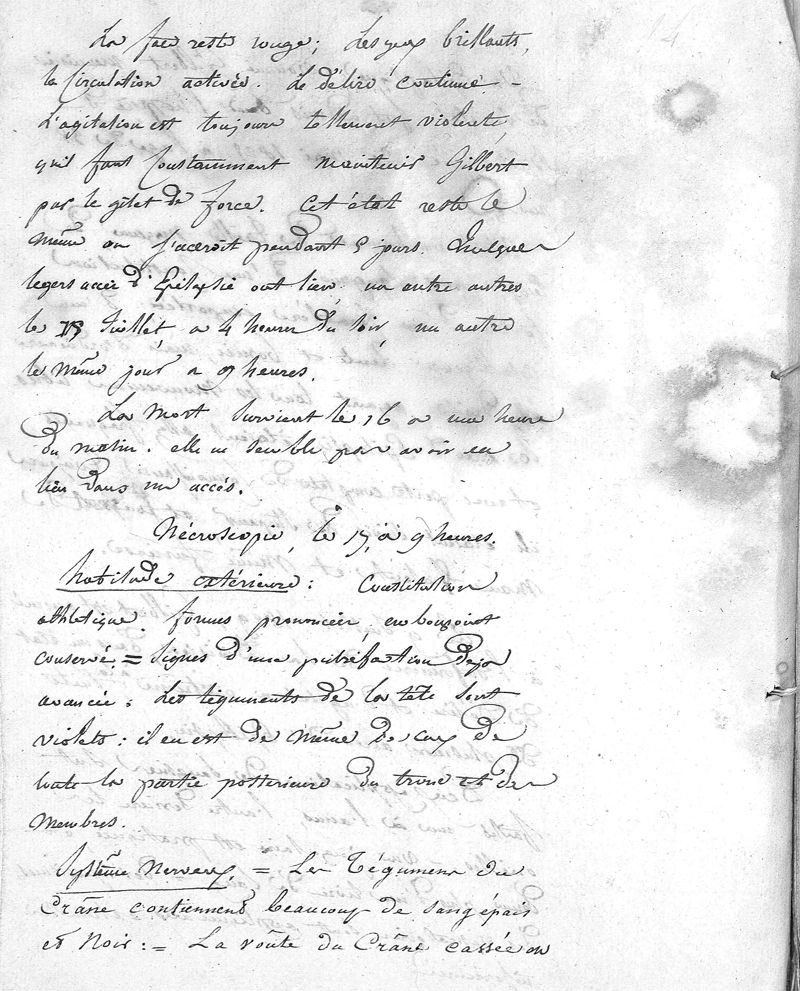 La face reste rouge; les yeux brillants,
la Circulation activée. Le délire continue –
L'agitation est toujours tellement violente,
qu'il faut constamment maintenir Gilbert
par le gilet de force. Cet état reste le
même ou s'accroit pendant 5 jours. Quelques
legers accès d'Epilepsie ont lieu un autre
le Juillet a 4 heures du soir, un autre
le même jour a 9 heures.
La Mort survient le 16 a une heure
du matin. elle ne semble pas avoir eu
lieu dans un accès.
Nécroscopie, le 17, a 9 heures.
habitude extérieure: Constitution
athletique. formes prononcées, embonpoint
conservé. = Signes d'une putréfaction deja
avancée: Les téguments de la tête sont
violets: il en est de même de ceux de
toute la partie postérieure du tronc et des
Membres.
Système Nerveux. = Les Téguments du
Crâne contiennent beaucoup de sang épais
et Noir: = La voûte du Crâne cassée on